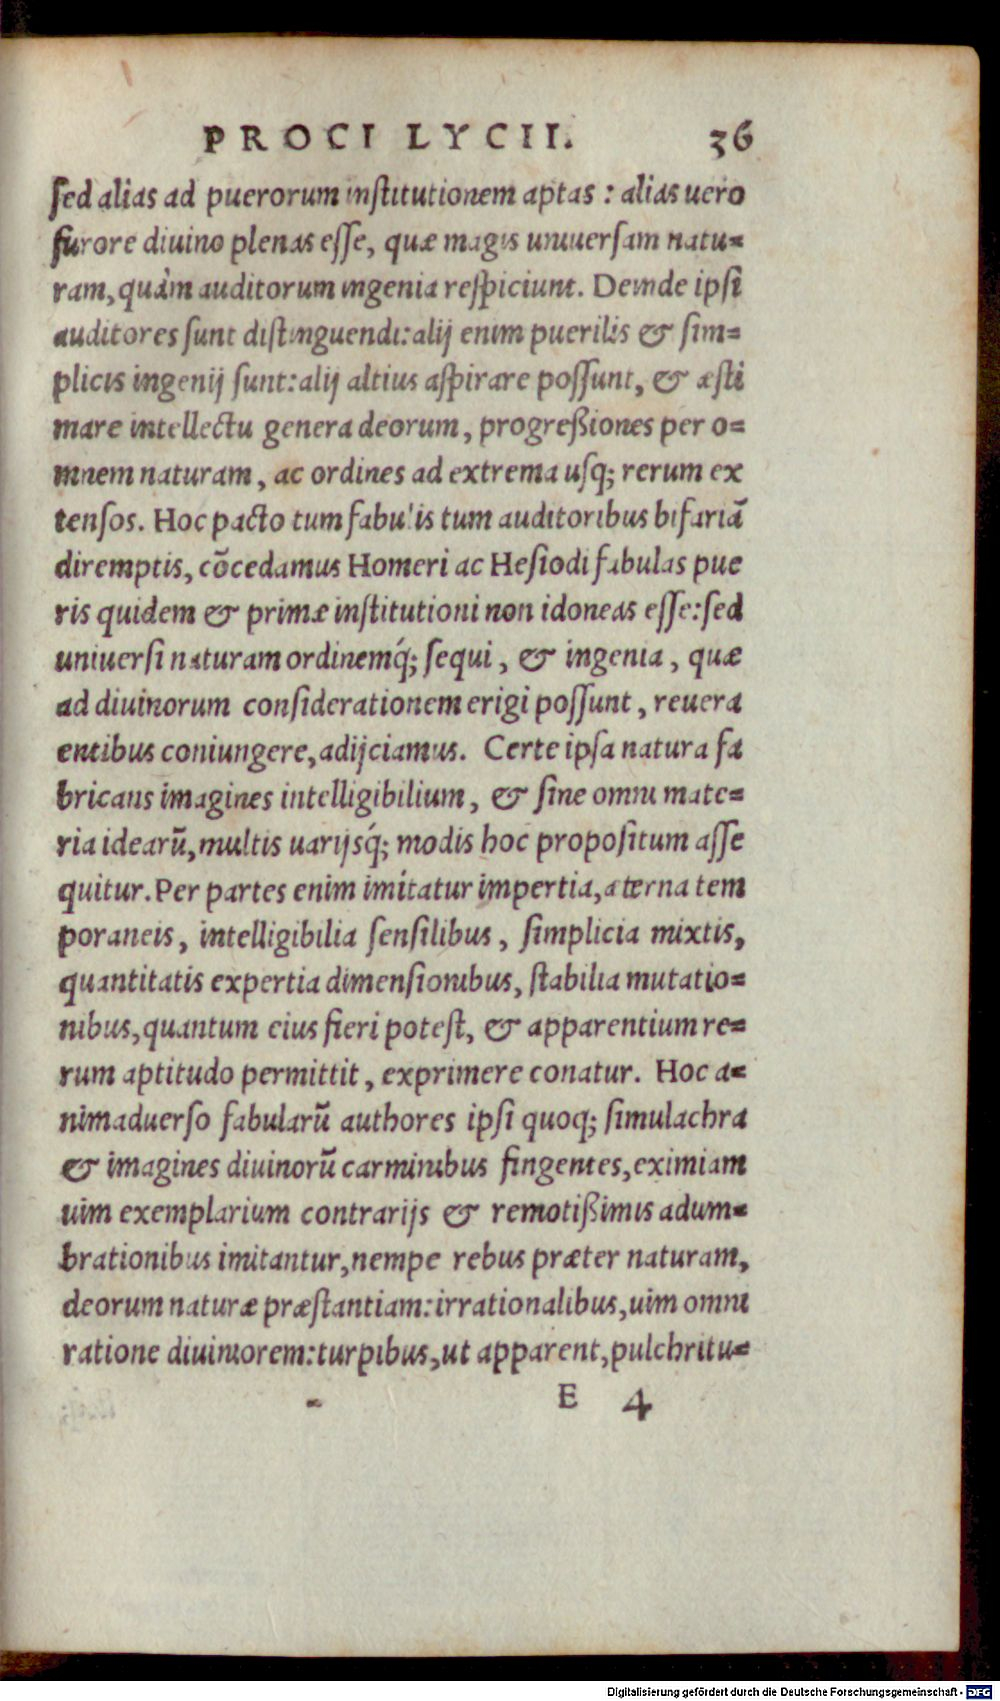 PROCI LYCII. 36
sed alias ad puerorum institutionem aptas : alias uero
furore diuino plenas esse, quæ magis uniuersam natu=
ram, quàm auditorum ingenia respiciunt. Deinde ipsi
auditores sunt distinguendi: alij enim puerilis & sim=
plicis ingenij sunt: alij altius aspirare possunt, & æsti
mare intellectu genera deorum, progreßiones per o=
mnem naturam, ac ordines ad extrema usq; rerum ex
tensos. Hoc pacto tum fabulis tum auditoribus bifariã
diremptis, cõcedamus Homeri ac Hesiodi fabulas pue
ris quidem & primæ institutioni non idoneas esse: sed
uniuersi naturam ordinemq́; sequi, & ingenia, quæ
ad diuinorum considerationem erigi possunt, reuera
entibus coniungere, adijciamus. Certe ipsa natura fa
bricans imagines intelligibilium, & sine omni mate=
ria idearũ, multis uarijsq́; modis hoc propositum asse
quitur. Per partes enim imitatur impertia, æterna tem
poraneis, intelligibilia sensilibus, simplicia mixtis,
quantitatis expertia dimensionibus, stabilia mutatio=
nibus, quantum eius fieri potest, & apparentium re=
rum aptitudo permittit, exprimere conatur. Hoc a=
nimaduerso fabularũ authores ipsi quoq; simulachra
& imagines diuinorũ carminibus fingentes, eximiam
uim exemplarium contrarijs & remotißimis adum=
brationibus imitantur, nempe rebus præter naturam,
deorum naturæ præstantiam: irrationalibus, uim omni
ratione diuiniorem: turpibus, ut apparent, pulchritu=
E 4
Digitalisierung gefördert durch die Deutsche Forschungsgemeinschaft - DFG